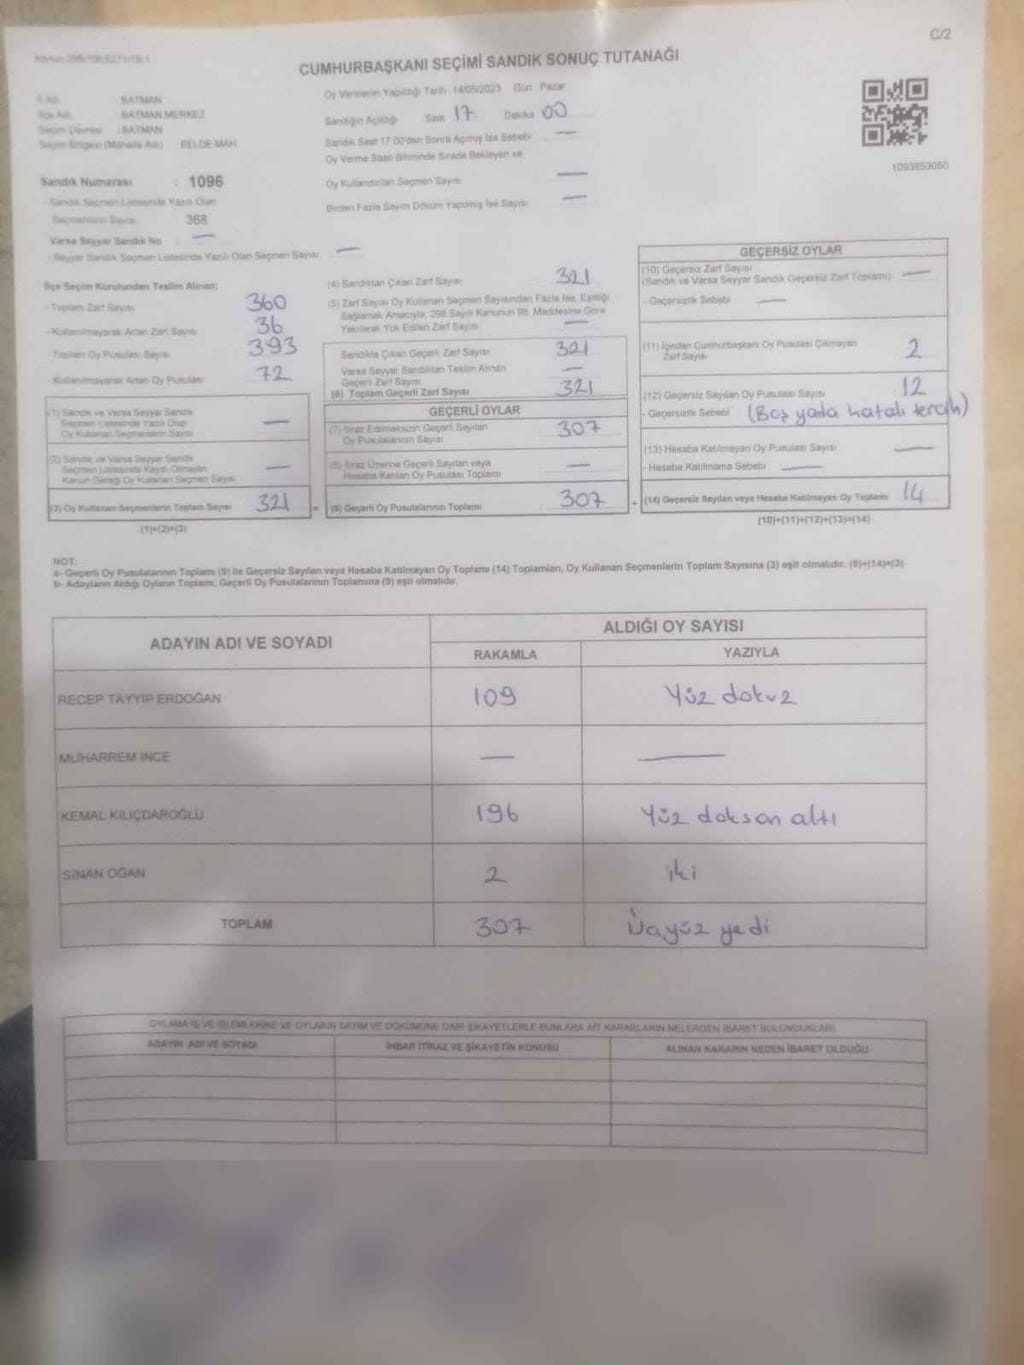 C/2
CUMHURBAŞKANI SEÇİMİ SANDIK SONUÇ TUTANAĞI
Oy Vermenin Yapıldığı Tarih :14/05/2023 Gün: Pazar
Sandığın Açıldığı Saat 17 Dakika 00
Sandık Saat 17:00'den Sonra Açılmış İse Sebebi —
Oy Verme Saati Bitiminde Sırada Bekleyen ve
Oy Kullandırılan Seçmen Sayısı —
Birden Fazla Sayım Döküm Yapılmış İse Sayısı —
İl Adı : BATMAN
İlçe Adı : BATMAN MERKEZ
Seçim Çevresi : BATMAN
Seçim Bölgesi (Mahalle Adı) : BELDE MAH.
1093853050
Sandık Numarası : 1096
- Sandık Seçmen Listesinde Yazılı Olan
Seçmenlerin Sayısı : 368
Varsa Seyyar Sandık No : —
- Seyyar Sandık Seçmen Listesinde Yazılı Olan Seçmen Sayısı : —
İlçe Seçim Kurulundan Teslim Alınan;
- Toplam Zarf Sayısı 360
- Kullanılmayarak Artan Zarf Sayısı 36
- Toplam Oy Pusulası Sayısı 393
- Kullanılmayarak Artan Oy Pusulası 72
(1) Sandık ve Varsa Seyyar Sandık
Seçmen Listesinde Yazılı Olup
Oy Kullanan Seçmenlerin Sayısı —
(2) Sandık ve Varsa Seyyar Sandık
Seçmen Listesinde Kayıtlı Olmayan
Kanun Gereği Oy Kullanan Seçmen Sayısı —
(3) Oy Kullanan Seçmenlerin Toplam Sayısı 321 =
(1)+(2)=(3)
(4) Sandıktan Çıkan Zarf Sayısı 321
(5) Zarf Sayısı Oy Kullanan Seçmen Sayısından Fazla İse, Eşitliği
Sağlamak Amacıyla, 298 Sayılı Kanunun 98. Maddesine Göre
Yakılarak Yok Edilen Zarf Sayısı —
Sandıkta Çıkan Geçerli Zarf Sayısı 321
Varsa Seyyar Sandıktan Teslim Alınan
Geçerli Zarf Sayısı —
(6) Toplam Geçerli Zarf Sayısı 321
GEÇERLİ OYLAR
(7) İtiraz Edilmeksizin Geçerli Sayılan
Oy Pusulalarının Sayısı 307
(8) İtiraz Üzerine Geçerli Sayılan veya
Hesaba Katılan Oy Pusulası Toplamı —
(9) Geçerli Oy Pusulalarının Toplamı 307 +
GEÇERSİZ OYLAR
(10) Geçersiz Zarf Sayısı
(Sandık ve Varsa Seyyar Sandık Geçersiz Zarf Toplamı) —
- Geçersizlik Sebebi —
(11) İçinden Cumhurbaşkanı Oy Pusulası Çıkmayan
Zarf Sayısı 2
(12) Geçersiz Sayılan Oy Pusulası Sayısı 12
- Geçersizlik Sebebi (Boş yada hatalı tercih)
(13) Hesaba Katılmayan Oy Pusulası Sayısı —
- Hesaba Katılmama Sebebi —
(14) Geçersiz Sayılan veya Hesaba Katılmayan Oy Toplamı 14
(10)+(11)+(12)+(13)=(14)
NOT:
a- Geçerli Oy Pusulalarının Toplamı (9) ile Geçersiz Sayılan veya Hesaba Katılmayan Oy Toplamı (14) Toplamları, Oy Kullanan Seçmenlerin Toplam Sayısına (3) eşit olmalıdır. (9)+(14)=(3)
b- Adayların Aldığı Oyların Toplamı, Geçerli Oy Pusulalarının Toplamına (9) eşit olmalıdır.
ADAYIN ADI VE SOYADI ALDIĞI OY SAYISI
RAKAMLA YAZIYLA
RECEP TAYYİP ERDOĞAN 109 Yüz dokuz
MUHARREM İNCE — —
KEMAL KILIÇDAROĞLU 196 Yüz doksan altı
SİNAN OĞAN 2 iki
TOPLAM 307 Üçyüz yedi
OYLAMA İŞ VE İŞLEMLERİNE VE OYLARIN SAYIM VE DÖKÜMÜNE DAİR ŞİKAYETLERLE BUNLARA AİT KARARLARIN NELERDEN İBARET BULUNDUKLARI
ADAYIN ADI VE SOYADI İHBAR İTİRAZ VE ŞİKAYETİN KONUSU ALINAN KARARIN NEDEN İBARET OLDUĞU